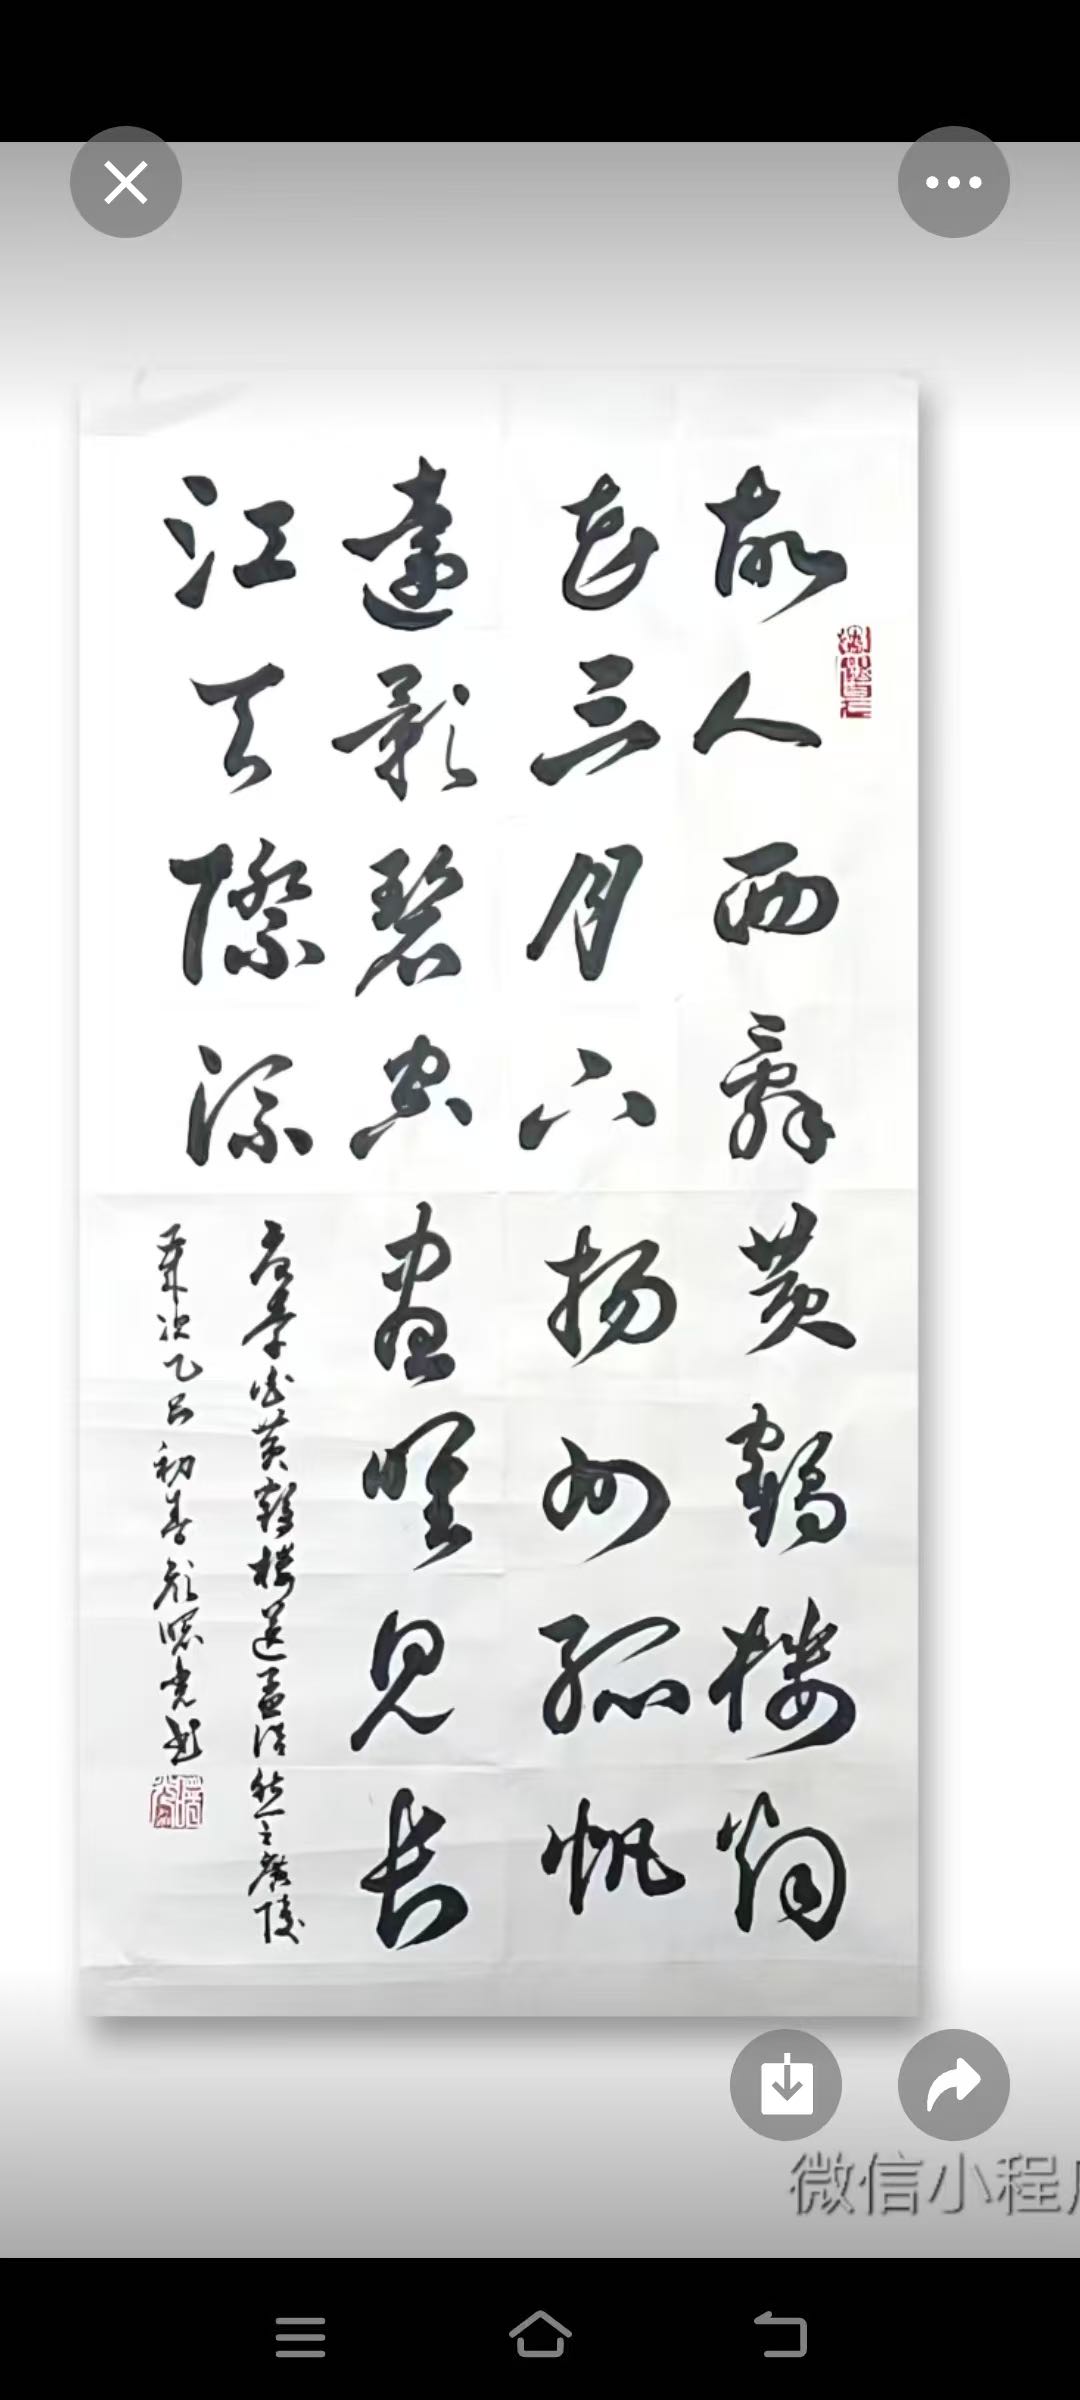 故人西辞黄鹤楼烟
花三月下扬州孤帆
远影碧空尽唯见长
江天际流
唐李白黄鹤楼送孟浩然之广陵
岁次乙巳初春 书
微信小程